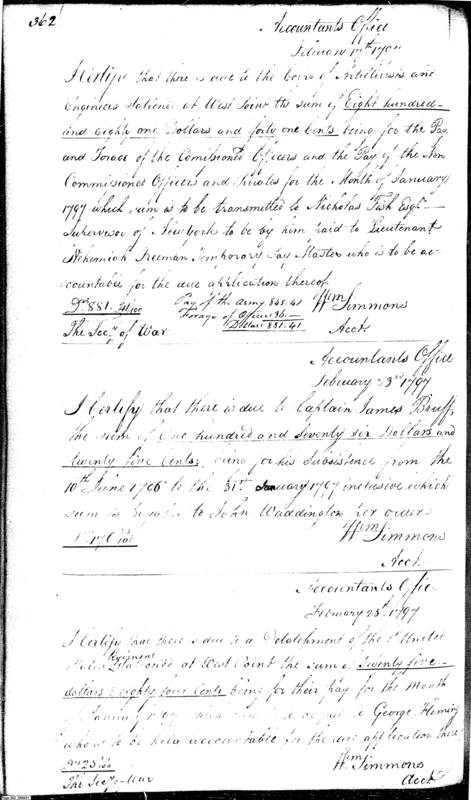 362
Accountants Office
February 17th 1797
I Certify that there is due to the Corps of Artillerists and
Engineers stationed at West Point the sum of Eight hundred
and eighty one Dollars and forty one Cents, being for the Pay
and Forage of the Comissioned Officers and the Pay of the Non
Commissioned Officers and Privates for the Month of January
1797 which sum is to be transmitted to Nicholas Fish Esqr.
Supervisor of New York to be by him paid to Lieutenant
Nehemiah Freeman Temporary Pay Master who is to be ac-
countable for the due application thereof
Drs 881. 41/100 Pay of the Army 845.41
Forage of Officers 36.—
Dollars 881.41
Wm Simmons
The Secy of War Acct.
Accountants Office
February 23rd 1797
I Certify that there is due to Captain James Bruff,
the sum of One hundred and Seventy six Dollars and
twenty five Cents; being for his Subsistence from the
10th June 1796 to the 31st January 1797 inclusive which
sum is payable to John Waddington per order
Wm Simmons
Acct.
Accountants Office
February 25th 1797
I Certify that there is due to a Detatchment of the 1st United
States Regiment Stationed at West Point the sum of Twenty five
dollars & eighty four Cents being for their pay for the Month
of January 1797 which sum is to George Fleming
who is to be held accountable for the due application there
Wm Simmons
The Secy of War Acct.